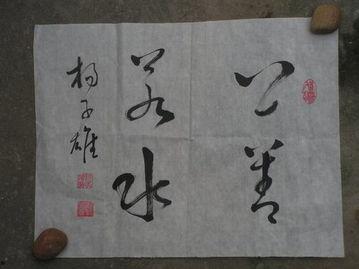 上善
若水
杨子雄